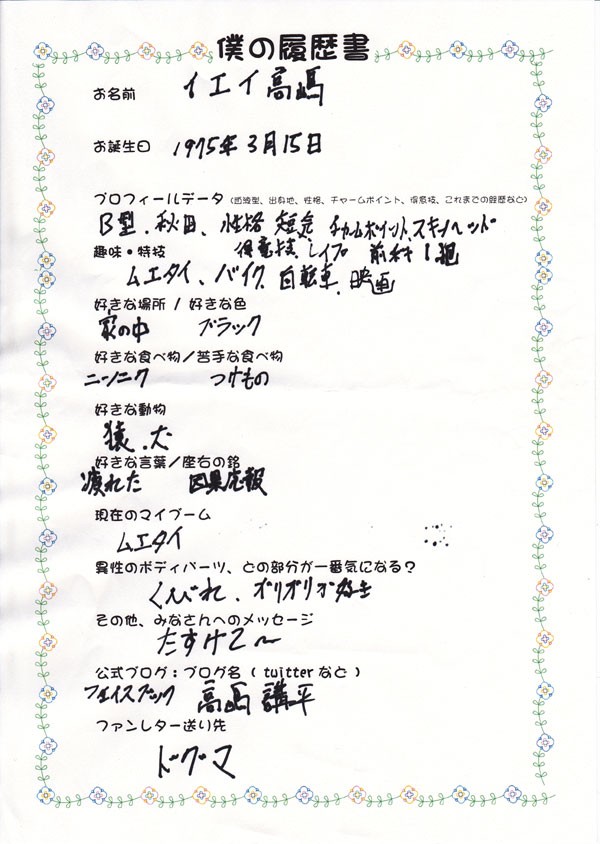 僕の履歴書
お名前 イエイ高嶋
お誕生日 1975年3月15日
プロフィールデータ(血液型、出身地、性格、チャームポイント、得意技、これまでの経歴など)
B型、秋田、性格 短気 チャームポイント、スキンヘッド
得意技、レイプ 前科1犯
趣味・特技
ムエタイ、バイク、自転車、映画
好きな場所 / 好きな色
家の中 ブラック
好きな食べ物/苦手な食べ物
ニンニク つけもの
好きな動物
猿、犬
好きな言葉/座右の銘
潰れた 因果応報
現在のマイブーム
ムエタイ
異性のボディパーツ、どの部分が一番気になる?
くびれ、ガリガリが好き
その他、みなさんへのメッセージ
たすけて〜
公式ブログ:ブログ名 ( twitterなど )
フェイスブック 高嶋講平
ファンレター送り先
ドグマ